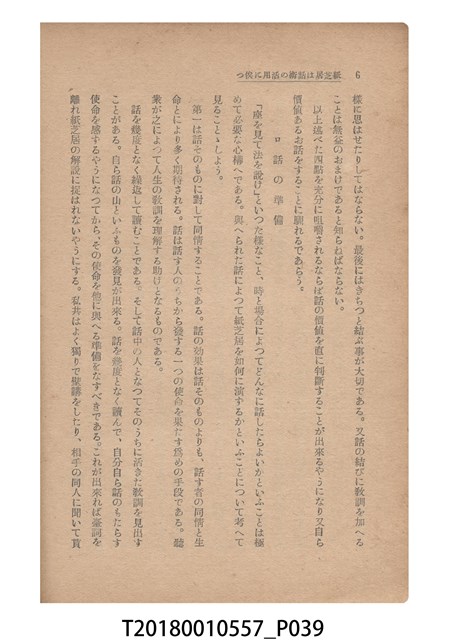 6　紙芝居は話術の活用に俟つ
様に思はせたりしてはならない。最後にはきちつと結ぶ事が大切である。又話の結びに敎訓を加へる
ことは無益のおまけであると知らねばならない。
以上述べた四點を充分に咀嚼されるならば話の價値を直に判斷することが出來るやうになり又自ら
價値あるお話をすることに馴れるであらう。
ロ　話の準備
「座を見て法を說け」といつた樣なこと、時と場合によつてどんなに話したらよいかといふことは極
めて必要な心構へである。與へられた話によつて紙芝居を如何に演ずるかといふことについて考へて
見ることゝしよう。
第一は話そのものに對して同情することである。話の効果は話そのものよりも、話す者の同情と生
命とにより多く期待される。話は話す人のうちから發する一つの使命を果たす爲めの手段である。聽
衆が之によつて人生の敎訓を理解する助けとなるものである。
話を幾度となく繰返して讀むことである。そして話中の人となつてそのうちに活きた敎訓を見出す
ことがある。自ら話の山といふものを發見が出來る。話を幾度となく讀んで、自分自ら話のもたらす
使命を感ずるやうになつてから、その使命を他に與へる準備をなすべきである。これが出來れば臺詞を
離れ紙芝居の解說に捉はれないやうにする。私共はよく獨りで聖讀をしたり、相手の同人に聞いて貰
T20180010557_P039